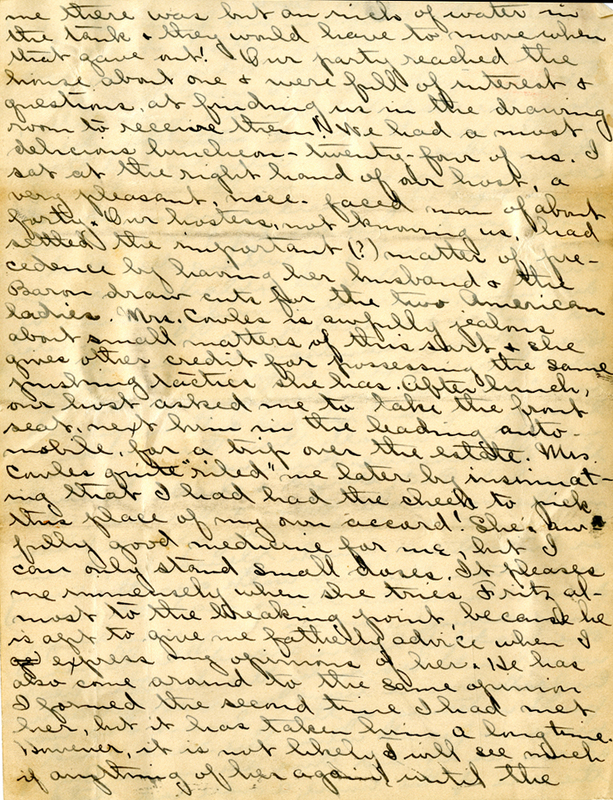 me there was but an inch of water in
the tank & they would have to move when
that gave out! Our party reached the
house about one & were full of interest &
questions, at finding us in the drawing
room to receive them! We had a most
delicious luncheon - twenty-four of us. I
sat at the right hand of our host, a
very pleasant, nice-faced man of about
forty. Our hostess, not knowing us, had
settled the important (?) matter of pre-
cedence by having her husband & the
Baron draw cuts for the two American
ladies. Mrs. Cowles is awfully jealous
about small matters of this sort & she
gives other credit for possessing the same
pushing tactics she has. After lunch,
our host asked me to take the front
seat, next him in the leading auto-
mobile, for a trip over the estate. Mrs
Cowles quite "riled" me later by insinuat-
ing that I had had the cheek to pick
this place of my own accord! She's aw-
fully good medicine for me, but I
can only stand small doses. It pleases
me immensely when she tries Fritz al-
most to the breaking point, because he
is apt to give me fatherly advice when I
express my opinions of her. He has
also come around to the same opinion
I formed the second time I had met
her, but it has taken him a long time.
However, it is not likely I will see much
if anything of her again until the